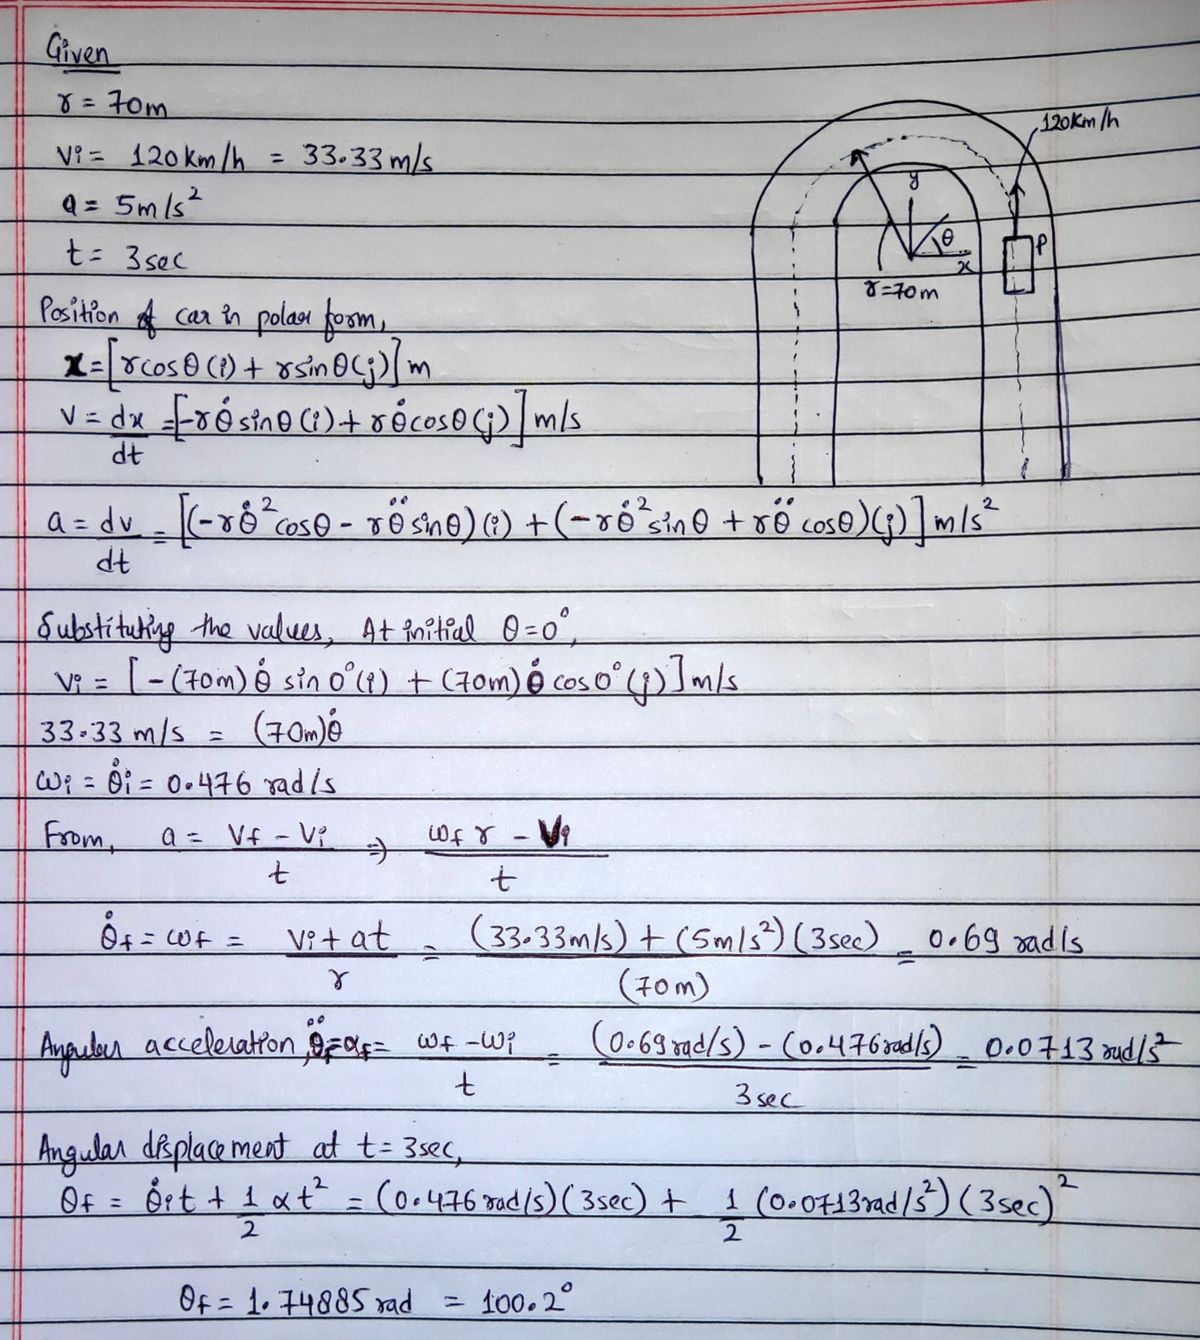 Given
r = 70m
Vi = 120 km/h = 33.33 m/s
a = 5m/s²
t = 3 sec
120Km/h
y
θ
x
P
r=70m
Position of car in polar form,
x = [r cosθ (i) + r sinθ (j)] m
V = dx/dt = [-rθ̇ sinθ (i) + rθ̇ cosθ (j)] m/s
a = dv/dt = [(-rθ̇² cosθ - rθ̈ sinθ) (i) + (-rθ̇² sinθ + rθ̈ cosθ) (j)] m/s²
Substituting the values, At initial θ=0°,
Vi = [-(70m) θ̇ sin 0° (i) + (70m) θ̇ cos 0° (j)] m/s
33.33 m/s = (70m)θ̇
ωi = θ̇i = 0.476 rad/s
From, a = Vf - Vi / t ⇒ ωf r - Vi / t
θ̇f = ωf = Vi + at / r = (33.33m/s) + (5m/s²) (3sec) / (70m) = 0.69 rad/s
Angular acceleration, θ̈f=αf = ωf - ωi / t = (0.69 rad/s) - (0.476 rad/s) / 3 sec = 0.0713 rad/s²
Angular displacement at t = 3sec,
θf = θ̇i t + 1/2 α t² = (0.476 rad/s) (3sec) + 1/2 (0.0713 rad/s²) (3sec)²
θf = 1.74885 rad = 100.2°